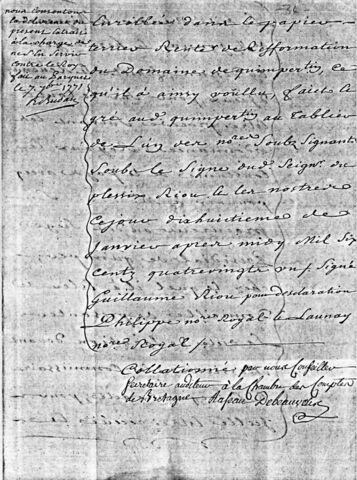 nous consentons
la delivrance du
present extrait
à la charge de
ne s'en servir
contre le Roy
fait au Parquet
le 7 7bre 1771
Enroller dans le papier
terrier Rentier de Refformation
du Domaine de quimpertin, ce
qu'il a ainsy voullu, faict le
gré aud. quimpertin au Tablier
de L'un des nores Soubs Signants
Soubs le Signe dud. Seignr. du
plessix Riou le les nostres
ce jour diahuitieme de
janvier apres midy Mil Six
centz quatrevingts un Signé
Guillaume Riou pour desclaration
Philippe nore Royal le Launay
nore Royal
Collationné par nous Conseiller
Secretaire auditeur à la Chambre des Comptes
de Bretagne